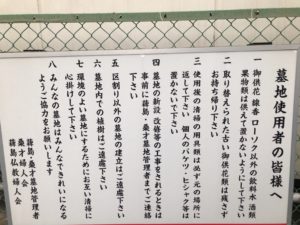 墓地使用者の皆様へ
一 御供花 線香 ローソク以外の飲料水 酒類
果物類は供えて置かないようにして下さい
二 取り替えられた古い御供花類は残さず
お持ち帰り下さい
三 使用後の清掃の用具類は必ず元の場所に
返して下さい 個人のバケツ・ヒシャク等は
置かないで下さい
四 墓地の新設・改修等の工事をされるときは
事前に蒋島・桑才墓地管理者までご連絡
下さい
五 区割り以外の墓地の建立はご遠慮下さい
六 墓地内での植樹はご遠慮下さい
七 環境のよい墓地にするためにお互い清掃に
心掛けして下さい
八 みんなの墓地はみんなできれいになる
ようご協力をお願いします
桑才墓地管理者
桑才婦人会
仏教婦人会